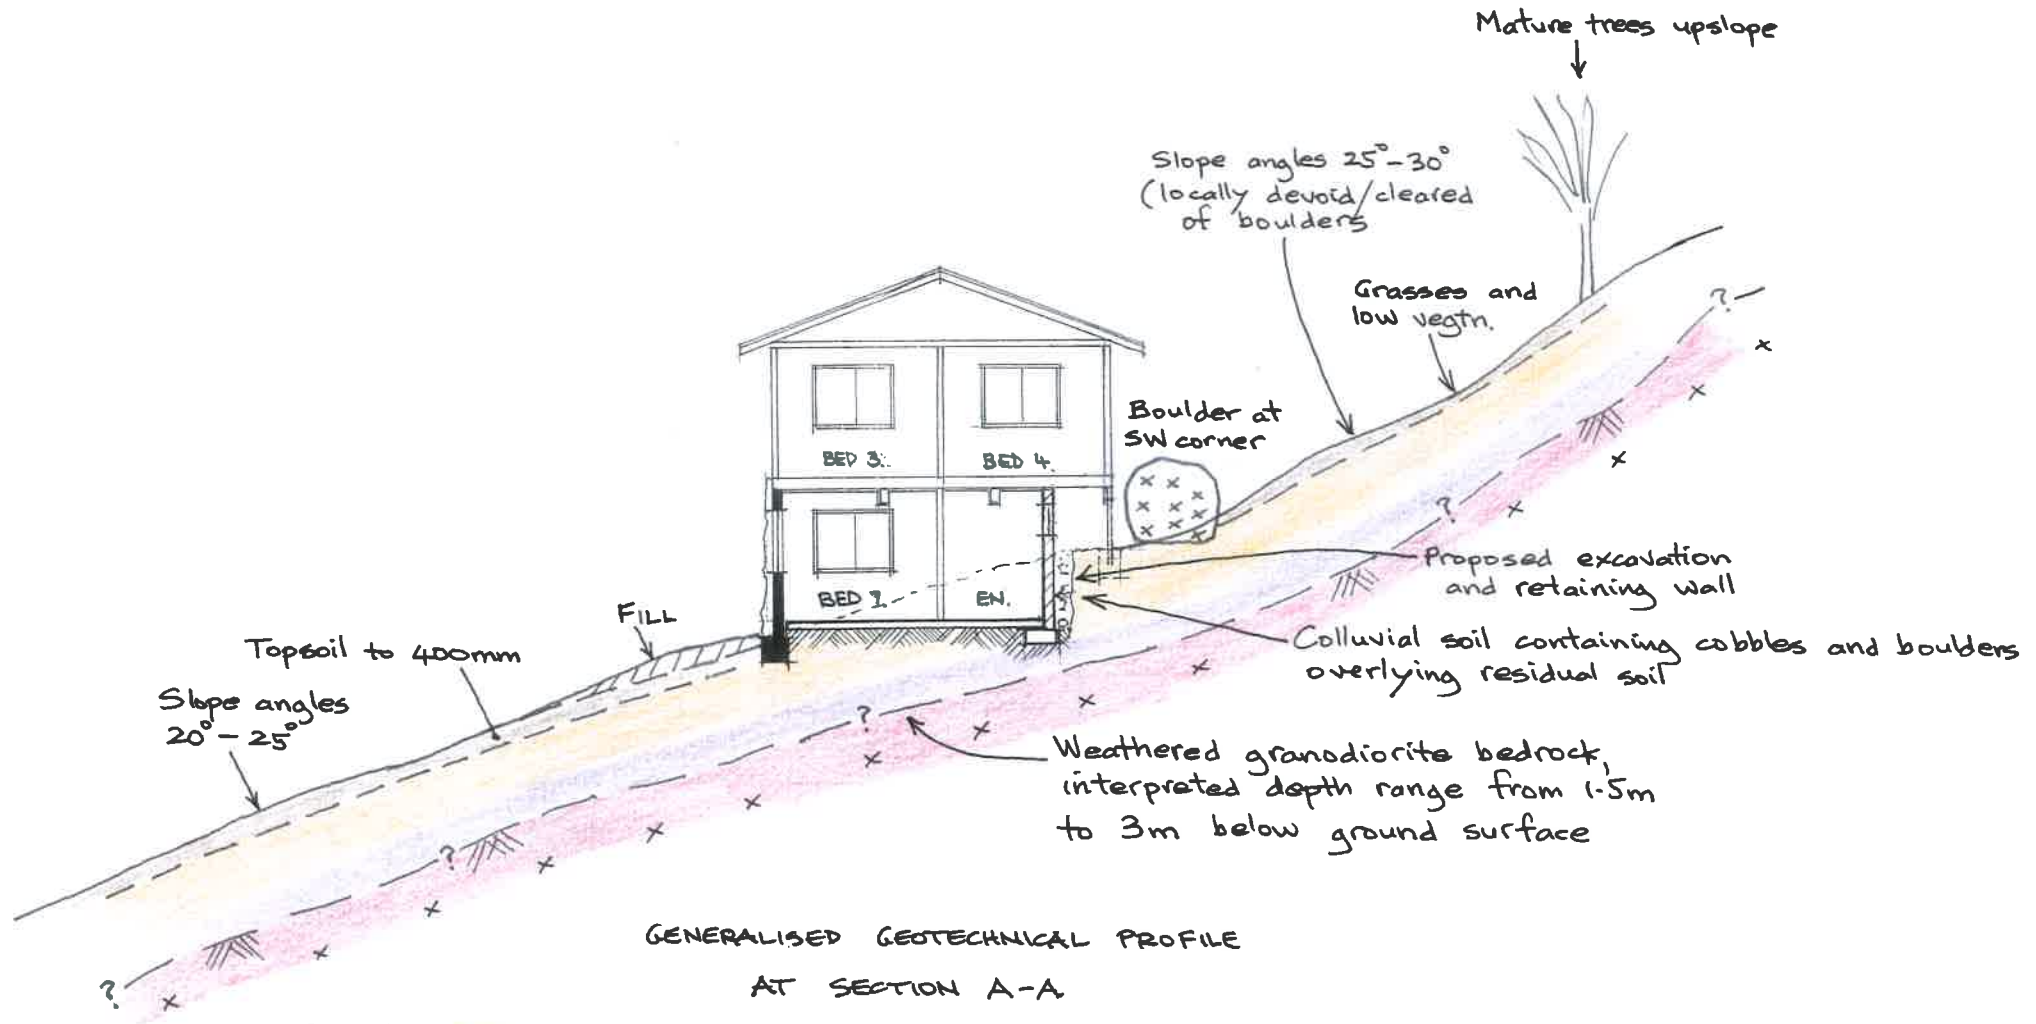 Mature trees upslope
Slope angles 25°-30°
(locally devoid/cleared
of boulders
Grasses and
low vegtn.
Boulder at
SW corner
BED 3.
BED 4.
BED
EN.
Proposed excavation
and retaining wall
FILL
Topsoil to 400mm
Colluvial soil containing cobbles and boulders
overlying residual soil
Slope angles
20°-25°
Weathered granodiorite bedrock,
interpreted depth range from 1.5m
to 3m below ground surface
?
?
?
?
?
GENERALISED GEOTECHNICAL PROFILE
AT SECTION A-A